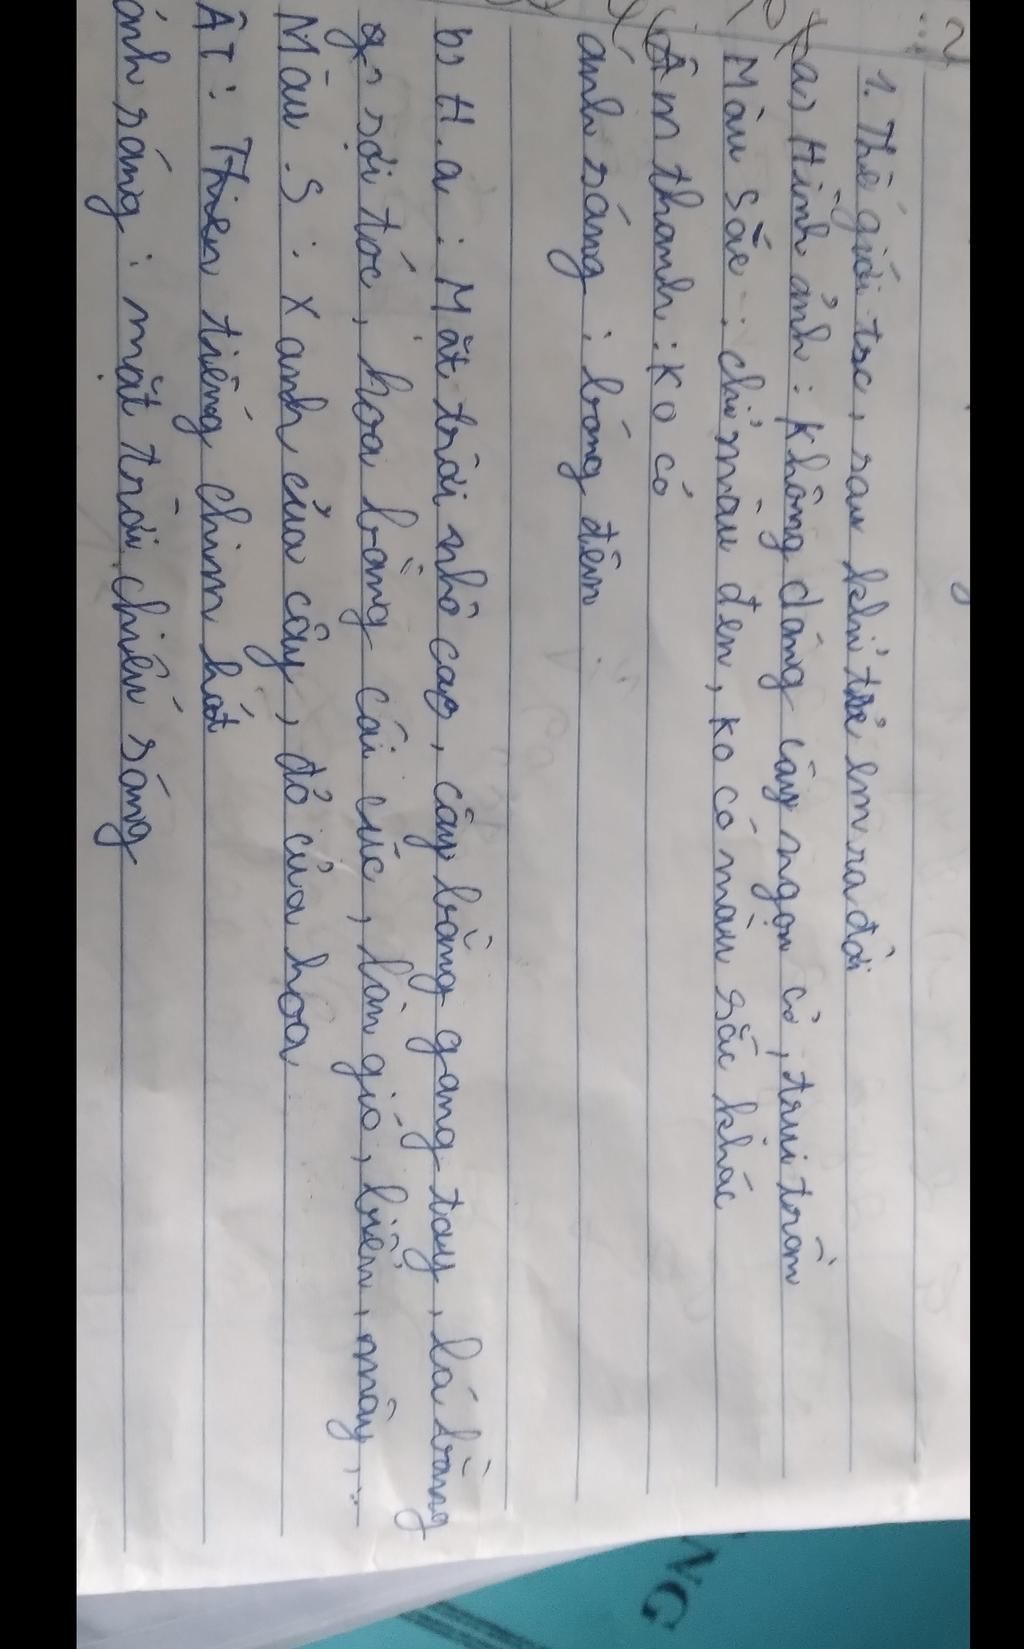 1. Thế giới trc, sau khi trẻ em ra đời
a, Hình ảnh : Không dáng cây ngọn cỏ, trụi trần
Màu sắc : chỉ màu đen, ko có màu sắc khác
Âm thanh : Ko có
ánh sáng : bóng đêm
b, H.a : Mặt trời nhô cao, cây bằng gang tay, lá bằng
sợi tóc, hoa bằng cái cúc, làn gió, biển, mây, ...
Màu S : Xanh của cây, đỏ của hoa
ÂT : tiếng chim hót
ánh sáng : mặt trời chiếu sáng
NG